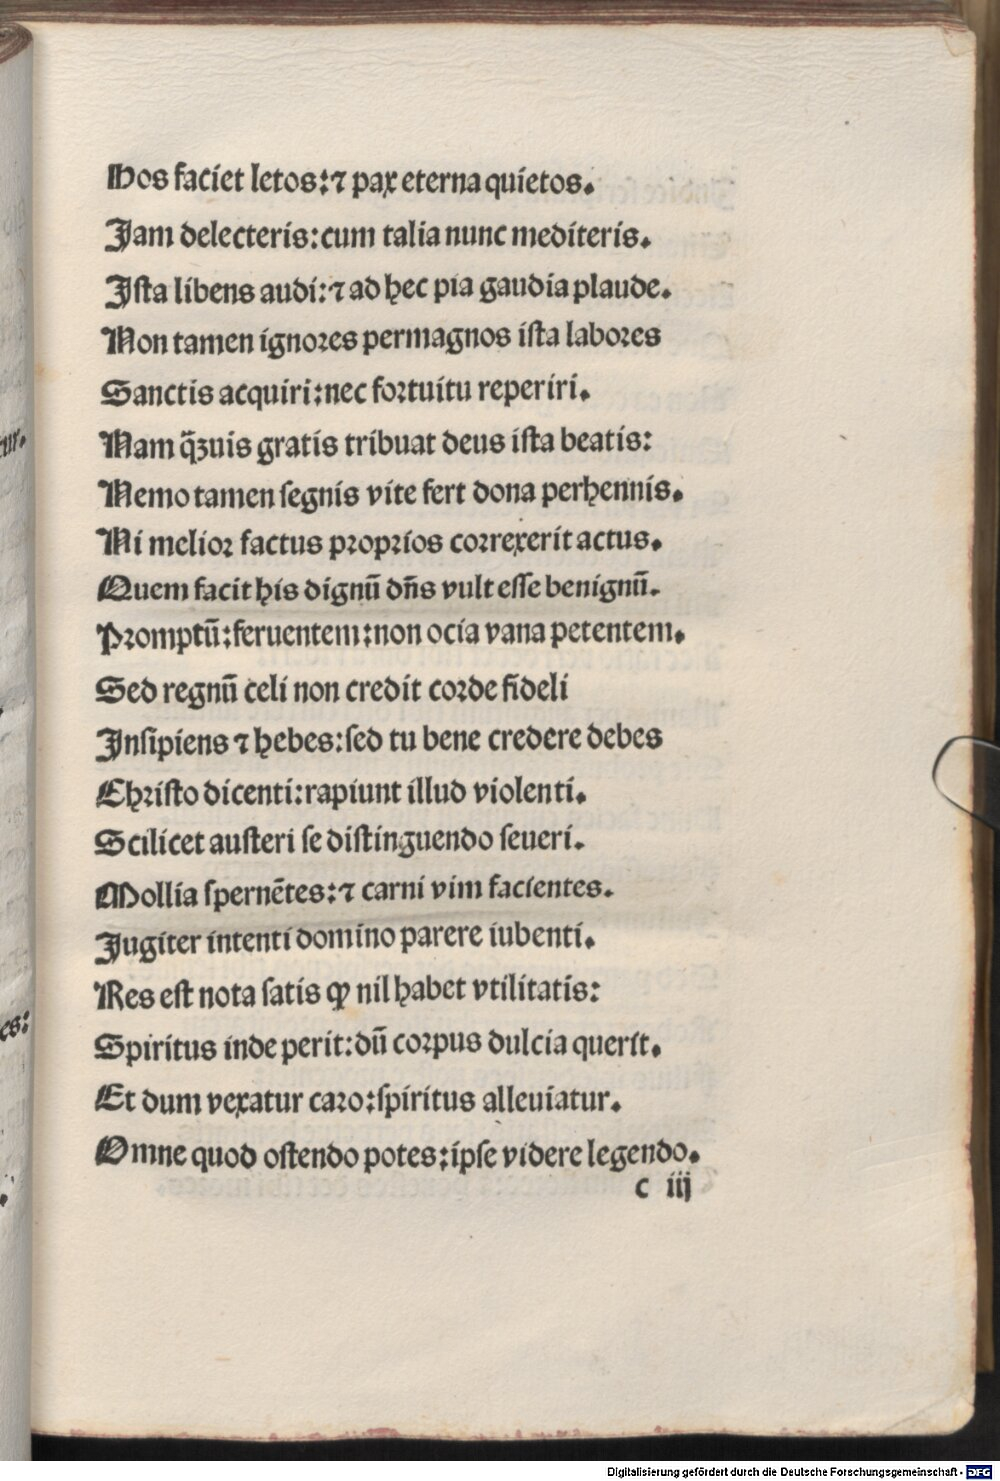 Hos faciet letos:⁊ pax eterna quietos.
Jam delecteris:cum talia nunc mediteris.
Ista libens audi:⁊ ad hec pia gaudia plaude.
Non tamen ignores permagnos ista labores
Sanctis acquiri:nec fortuitu reperiri.
Nam q̄ꝫuis gratis tribuat deus ista beatis:
Nemo tamen segnis vite fert dona perhennis.
Ni melior factus proprios correxerit actus.
Quem facit his dignū dn̄s vult esse benignū.
Promptū:feruentem:non ocia vana petentem.
Sed regnū celi non credit corde fideli
Insipiens ⁊ hebes:sed tu bene credere debes
Christo dicenti:rapiunt illud violenti.
Scilicet austeri se distinguendo seueri.
Mollia spernētes:⁊ carni vim facientes.
Jugiter intenti domino parere iubenti.
Res est nota satis ꝙ nil habet vtilitatis:
Spiritus inde perit:dū corpus dulcia querit.
Et dum vexatur caro:spiritus alleuiatur.
Omne quod ostendo potes:ipse videre legendo.
c iij
Digitalisierung gefördert durch die Deutsche Forschungsgemeinschaft - DFG